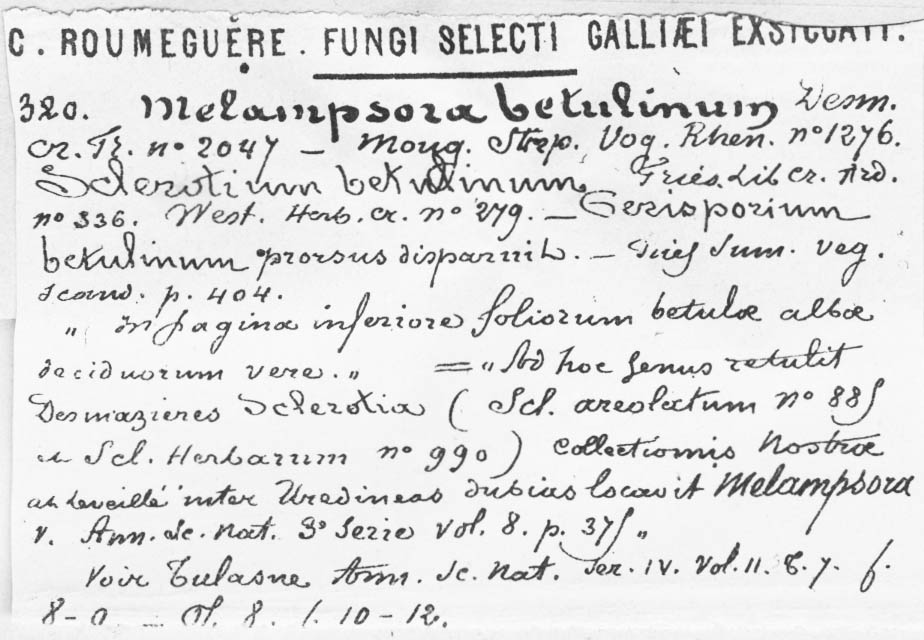 C. ROUMEGUÈRE. FUNGI SELECTI GALLIÆI EXSICCATI.
320. Melampsora betulinum Desm.
cr. Fr. nº 2047 – Moug. Stirp. Vog. Rhen. nº 1276.
Sclerotium betulinum Fries. Lib cr. Ard.
nº 336. West. Herb. cr. nº 279. –
betulinum prorsus disparuit. – Fries Sum. veg.
scand. p. 404.
„ In pagina inferiore foliorum betulæ albæ
deciduorum vere. „ = „ Ad hoc genus retulit
Desmazieres Sclerotia ( Scl. areolatum nº 885
et Scl. Herbarum nº 990 ) collectionis nostræ
at Leveillé inter Uredineas dubias locavit Melampsora
v. Ann. Sc. nat. 3º Serie vol. 8. p. 375 „
Voir Tulasne Ann. Sc. Nat. Ser. IV. Vol. II. T. 7. f.
8-9 – Pl. 8. f. 10-12.